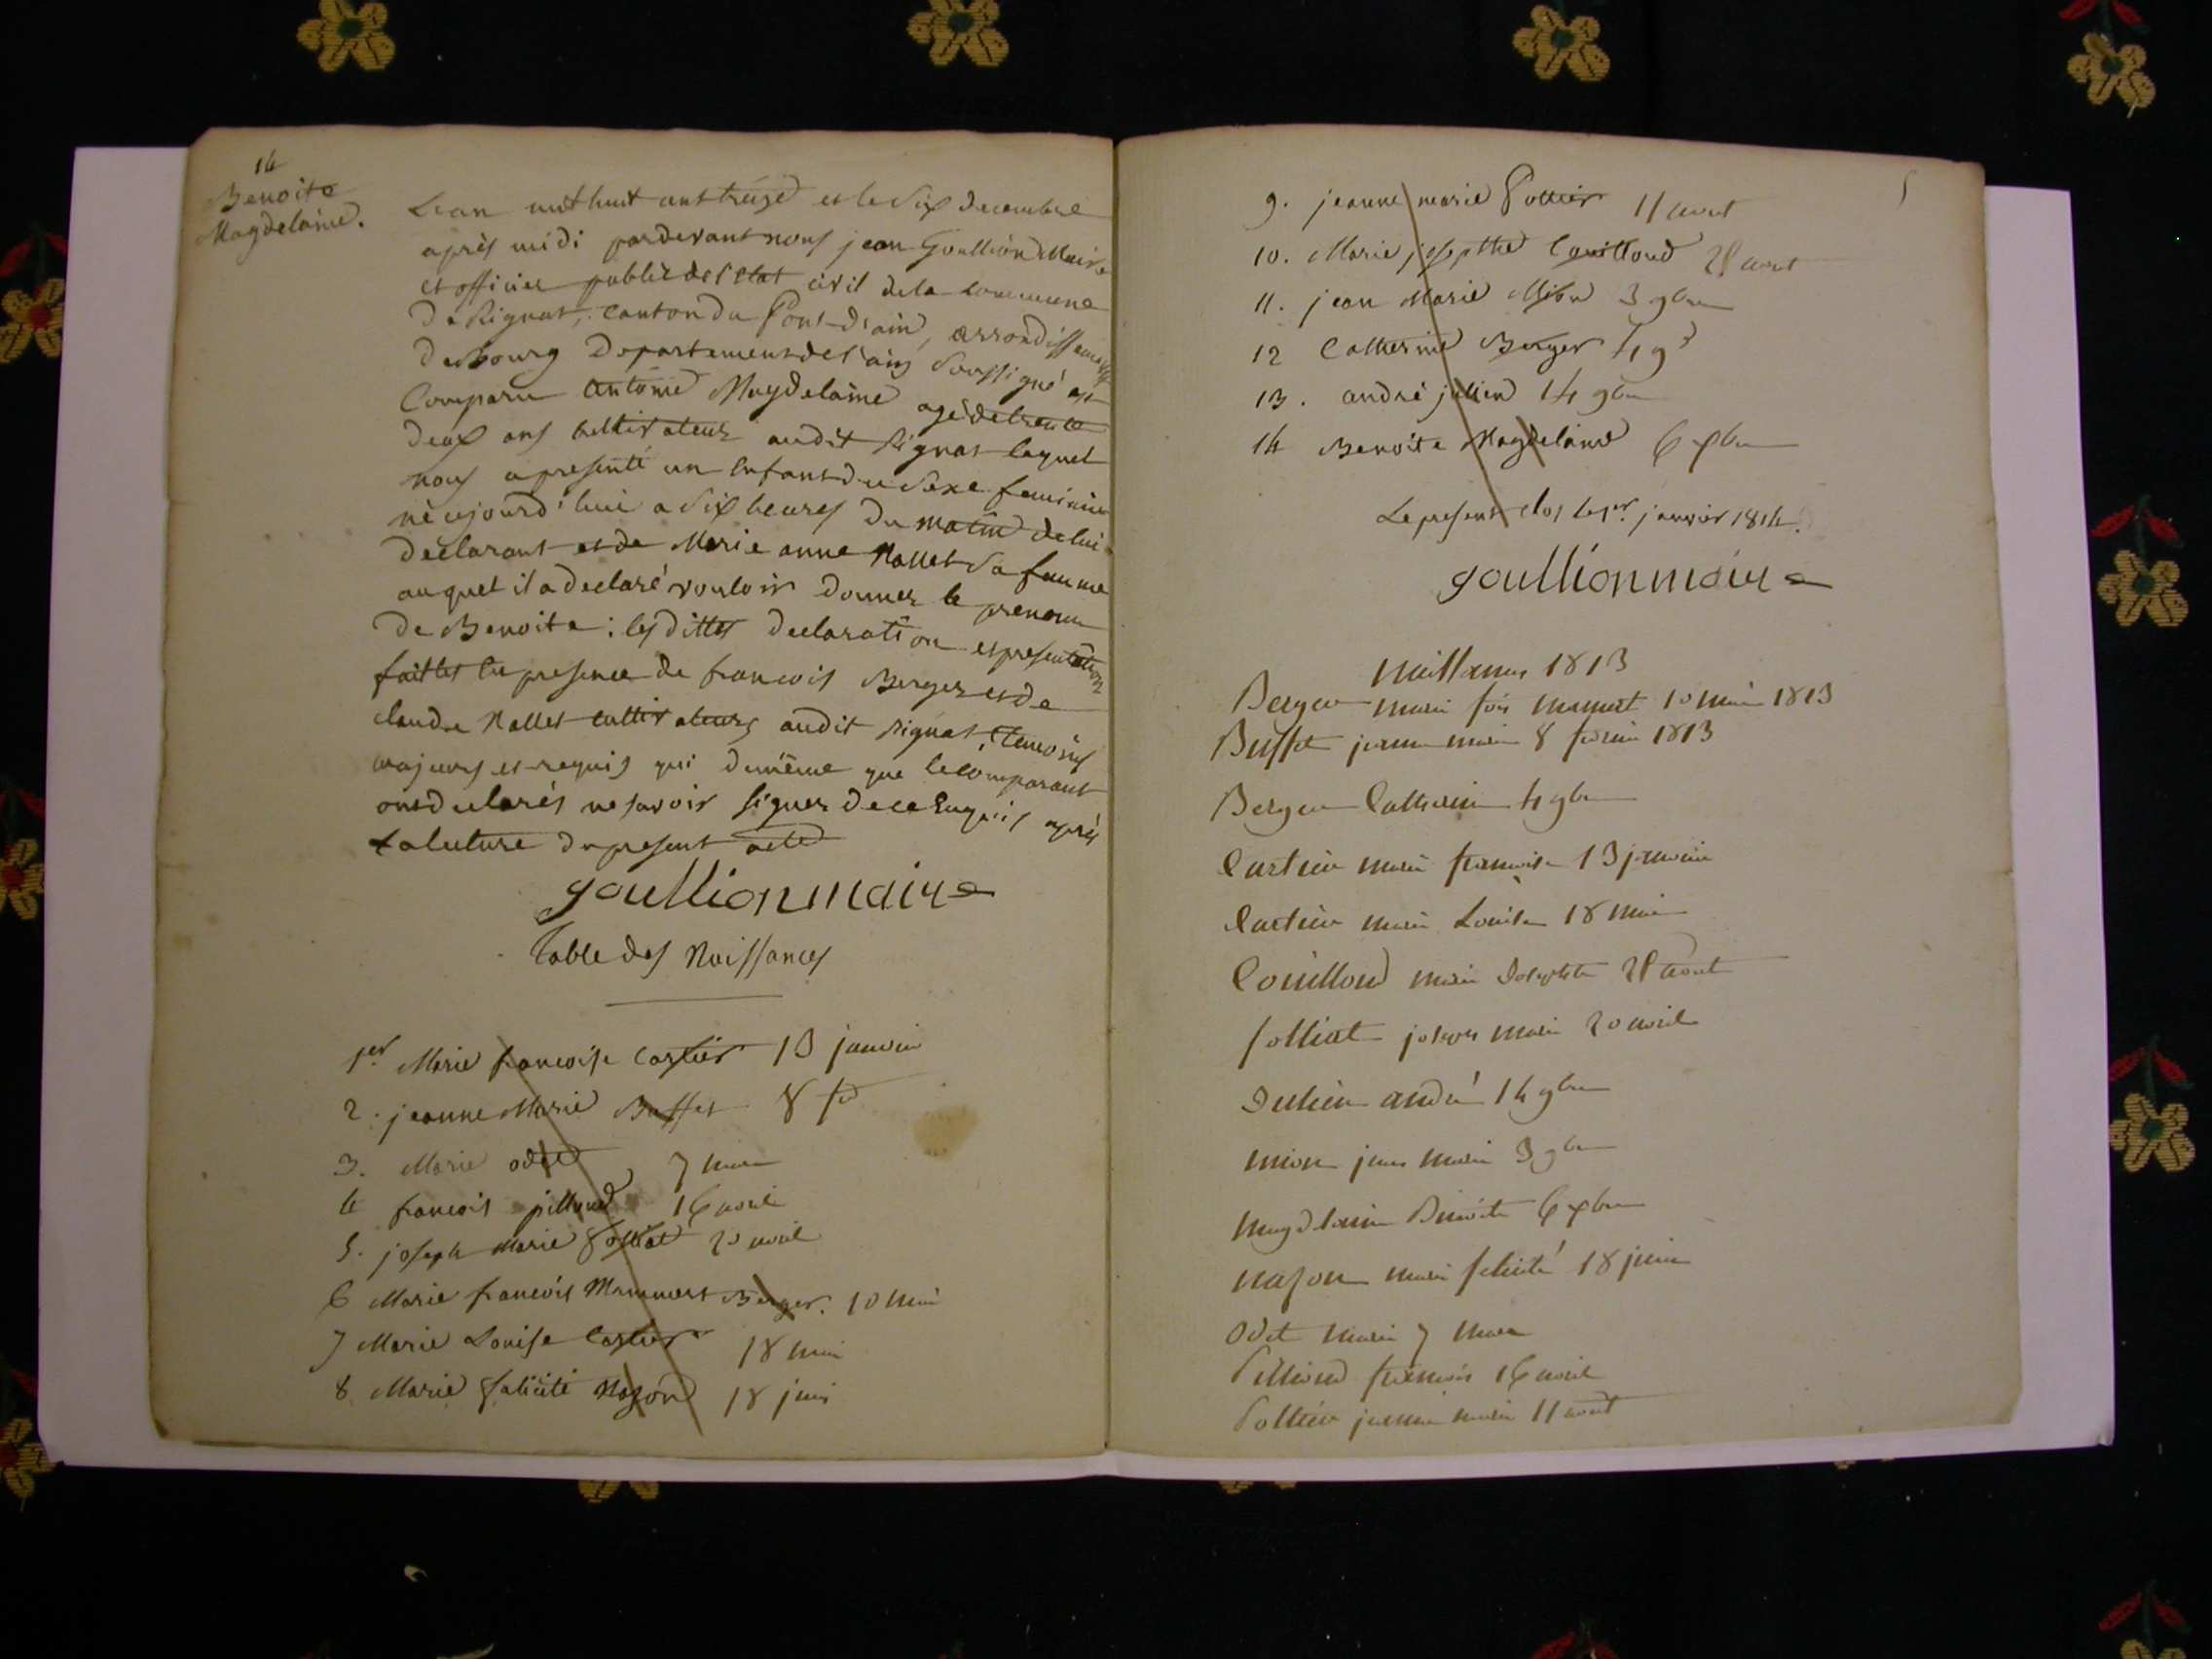 14
Benoite
Magdelaine.
L'an mil huit cent treize et le Six decembre
après midi pardevant nous jean Goullion Maire
et officier public de l'etat civil de la commune
de Rignat, canton du Pont-d'ain, arrondissement
de Bourg Departement de l'ain Soussigné est
Comparu antoine Magdelaine agé de trente
deux ans cultivateur audit Rignat lequel
nous a presenté un Enfant du Sexe feminin
né aujourd'hui a Six heures du matin de lui
declarant et de Marie anne Nallet Sa femme
auquel il a declaré vouloir donner le prenom
de Benoite: lesdittes declaration et presentation
faittes en presence de francois Berger et de
claude Nallet cultivateurs audit Rignat, temoins
majeurs et requis qui de même que le comparant
ont declarés ne savoir signer de ce Enquis après
la lecture du present acte
goullion maire
Table des Naissances
1er Marie francoise Cartier 13 janvier
2. jeanne Marie Buffet 8 fr
3. Marie odet 7 mars
4 francois pilloud 16 avril
5. joseph Marie folliat 20 avril
6 Marie francois Mammert Berger. 10 mai
7 Marie Louise Cartier 18 mai
8 Marie falicité Nazon 18 juin
5
9. jeanne marie Pottier 11 aout
10. Marie josepthe Couilloud 28 aout
11. jean Marie Mion 3 9bre
12 Catherine Berger 4 9b
13. andré julien 14 9bre
14 Benoite Magdelaine 6 xbre
Le present clos le 1er. janvier 1814.
goullion maire
Naissances 1813
Berger marie fois mamert 10 mai 1813
Buffet jeanne marie 8 fevrier 1813
Berger Catherine 4 9bre
Cartier marie francoise 13 janvier
Cartier marie Louise 18 mai
Couilloud marie Josephte 28 aout
folliat joseph marie 20 avril
Julien andré 14 9bre
mion jean marie 3 9bre
magdelaine Benoite 6 xbre
nazon marie felicité 18 juin
Odet marie 7 mars
Pilloud francois 16 avril
Pottier jeanne marie 11 aout